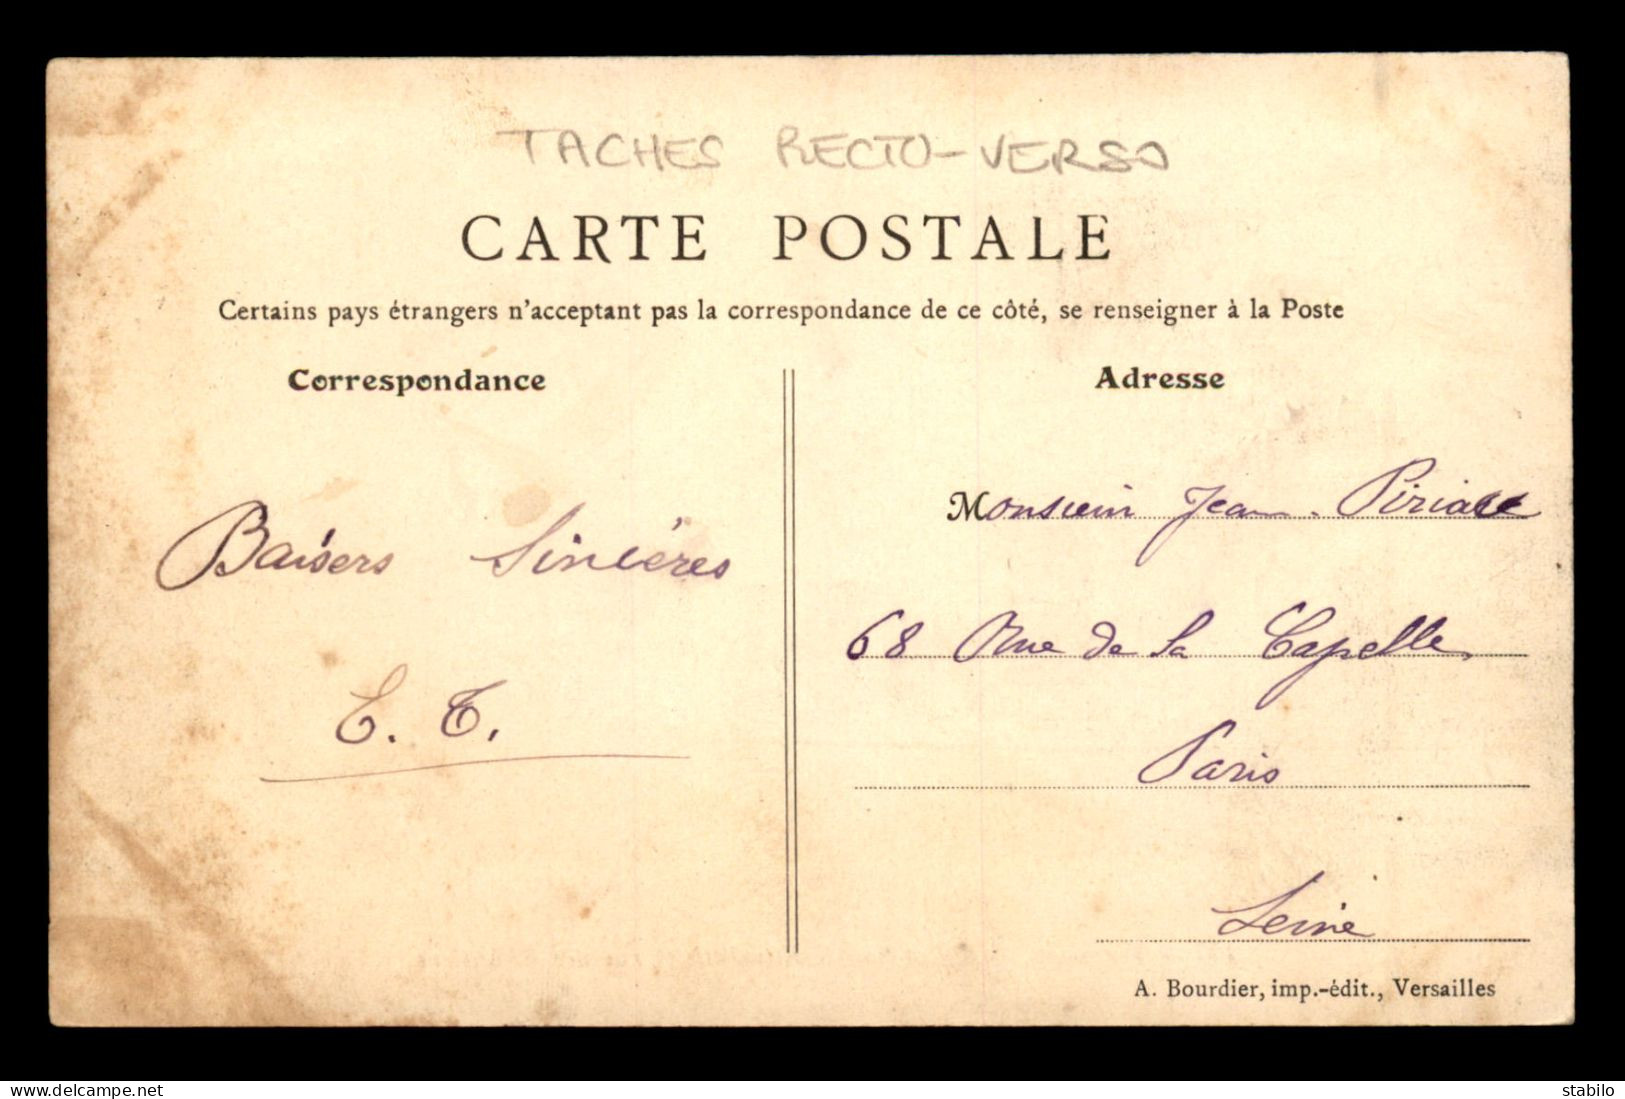 TACHES RECTO-VERSO
CARTE POSTALE
Certains pays étrangers n'acceptant pas la correspondance de ce côté, se renseigner à la Poste
Correspondance
Baisers Sincères
E. T.
Adresse
Monsieur Jean
68 Rue de la Capelle
Paris
Seine
A. Bourdier, imp.-édit., Versailles
www.delcampe.net
stabilo